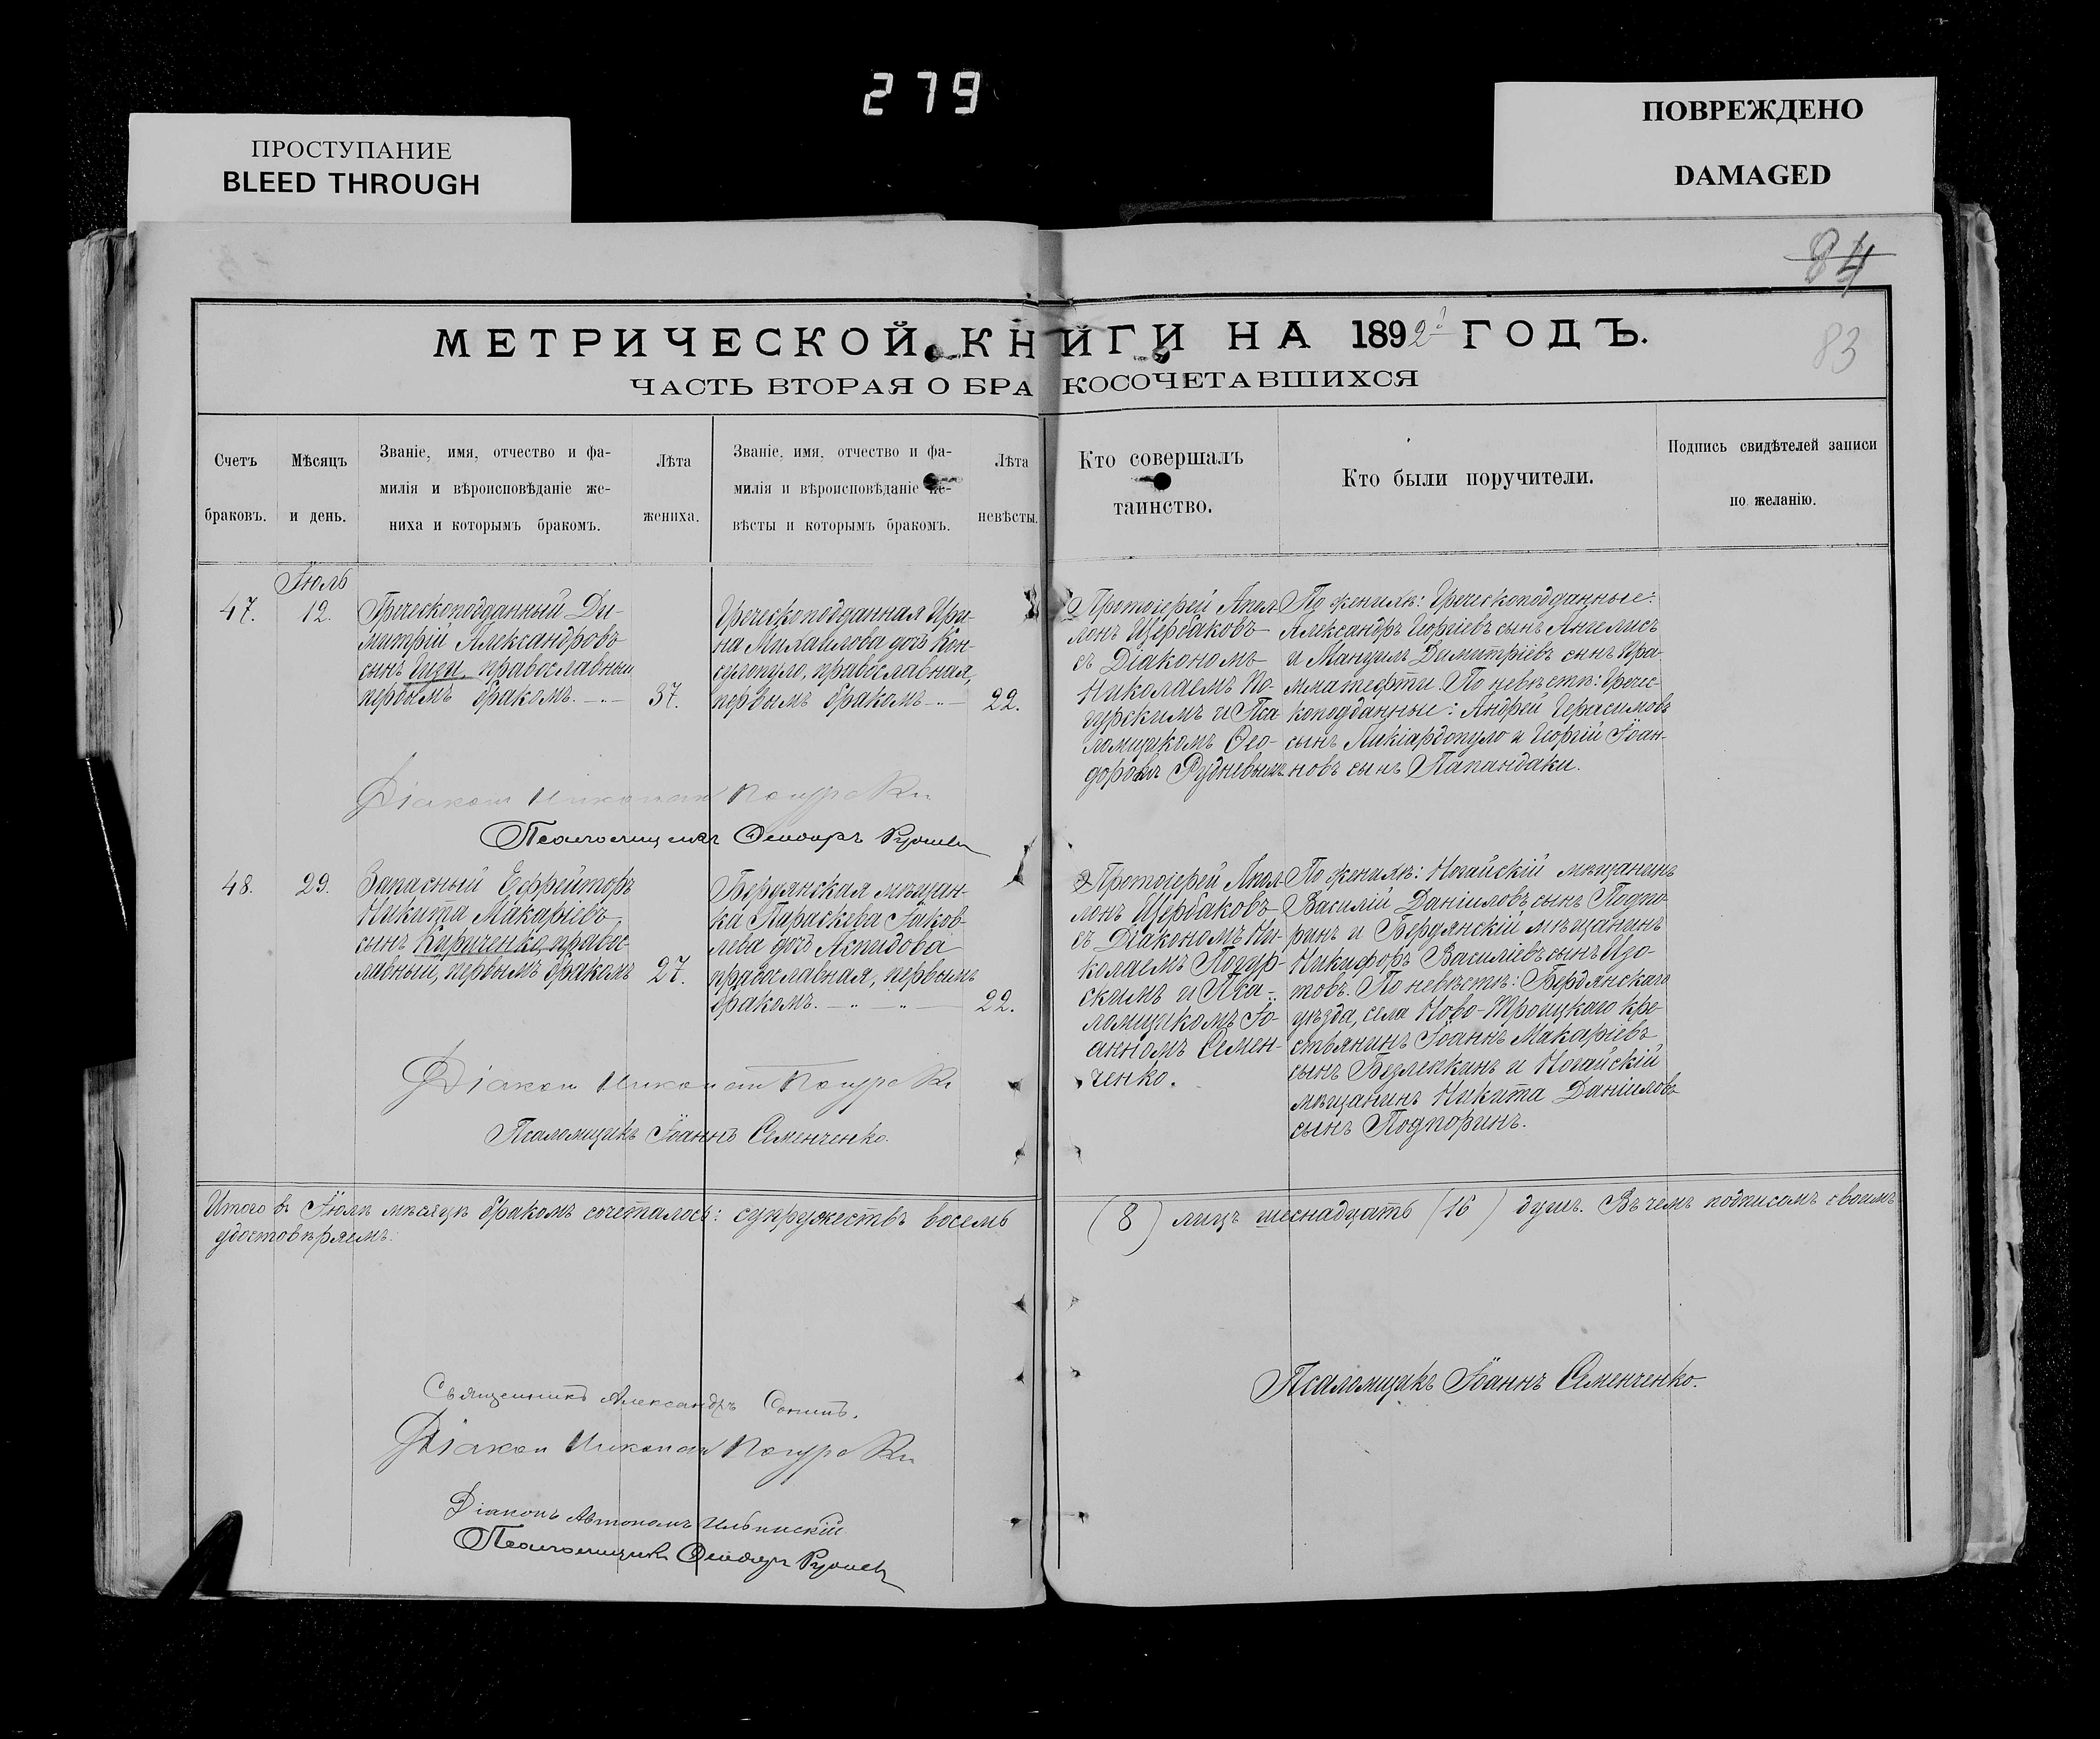 279
ПРОСТУПАНИЕ
BLEED THROUGH
ПОВРЕЖДЕНО
DAMAGED
84
83
МЕТРИЧЕСКОЙ КНИГИ НА 1892й ГОДЪ.
ЧАСТЬ ВТОРАЯ О БРАКОСОЧЕТАВШИХСЯ
Счетъ
браковъ.
Мѣсяцъ
и день.
Званіе, имя, отчество и фа-
милія и вѣроисповѣданіе же-
ниха и которымъ бракомъ.
Лѣта
жениха.
Званіе, имя, отчество и фа-
милія и вѣроисповѣданіе не-
вѣсты и которымъ бракомъ.
Лѣта
невѣсты.
Кто совершалъ
таинство.
Кто были поручители.
Подпись свидѣтелей записи
по желанію.
47.
Іюль
12.
Греческоподданный Ди-
митрій Александровъ
сынъ православный
первымъ бракомъ.
37.
Греческоподданная Ири-
на Михаилова дочь Кон-
сулопуло, православная,
первымъ бракомъ
22.
Протоіерей Апол-
лонъ Щербаковъ
съ Діакономъ
Николаемъ По-
гурскимъ и Пса
ломщикомъ Ѳео-
доромъ Рудневымъ
По женихѣ: Греческоподданные:
Александръ Георгіевъ сынъ Ангелисъ
и Мануилъ Димитріевъ сынъ Кра-
мматефти. По невѣстѣ: Гречес-
коподданные: Андрей Герасимовъ
сынъ Ликіардопуло и Георгій Іоан-
новъ сынъ Папандаки.
Діаконъ Николай Погурскій
Псаломщикъ Ѳеодоръ Рудневъ
48.
29.
Запасный Ефрейторъ
Никита Макаріевъ
сынъ Кириченко, правос-
лавный, первымъ бракомъ
27.
Бердянская мѣщан-
ка Параскева Іаков-
лева дочь Аспидова
православная, первымъ
бракомъ.
22.
Протоіерей Апол-
лонъ Щербаковъ
съ Діакономъ Ни-
колаемъ Погур-
скимъ и Пса-
ломщикомъ Іо-
анномъ Семен-
ченко.
По женихѣ: Ногайскій мѣщанинъ
Василій Даніиловъ сынъ Подпо-
ринъ и Бердянскій мѣщанинъ
Никифоръ Василіевъ сынъ Изо-
товъ. По невѣстѣ: Бердянскаго
уѣзда, села Ново-Троицкаго кре-
стьянинъ Іоаннъ Макаріевъ
сынъ Безлепкинъ и Ногайскій
мѣщанинъ Никита Даніиловъ
сынъ Подпоринъ.
Діаконъ Николай Погурскій
Псаломщикъ Іоаннъ Семенченко.
Итого въ Іюлѣ мѣсяцѣ бракомъ сочеталось: супружествъ восемь (8) лицъ шеснадцать (16) душъ. Въ чемъ подписомъ своимъ
удостовѣряемъ:
Священникъ Александръ
Діаконъ Николай Погурскій
Діаконъ Автономъ Ильинскій
Псаломщикъ Ѳеодоръ Рудневъ
Псаломщикъ Іоаннъ Семенченко.